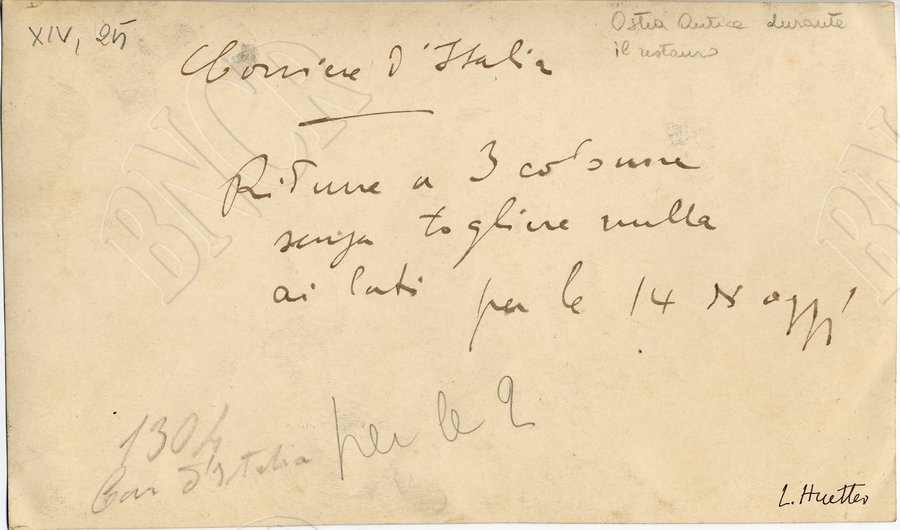 XIV, 25
Ostia Antica durante
il restauro
Corriere d'Italia
Ridurre a 3 colonne
senza togliere nulla
ai lati per le 14 oggi
per le 2
1304
Corr d'Italia
L. Huetter
BNCR